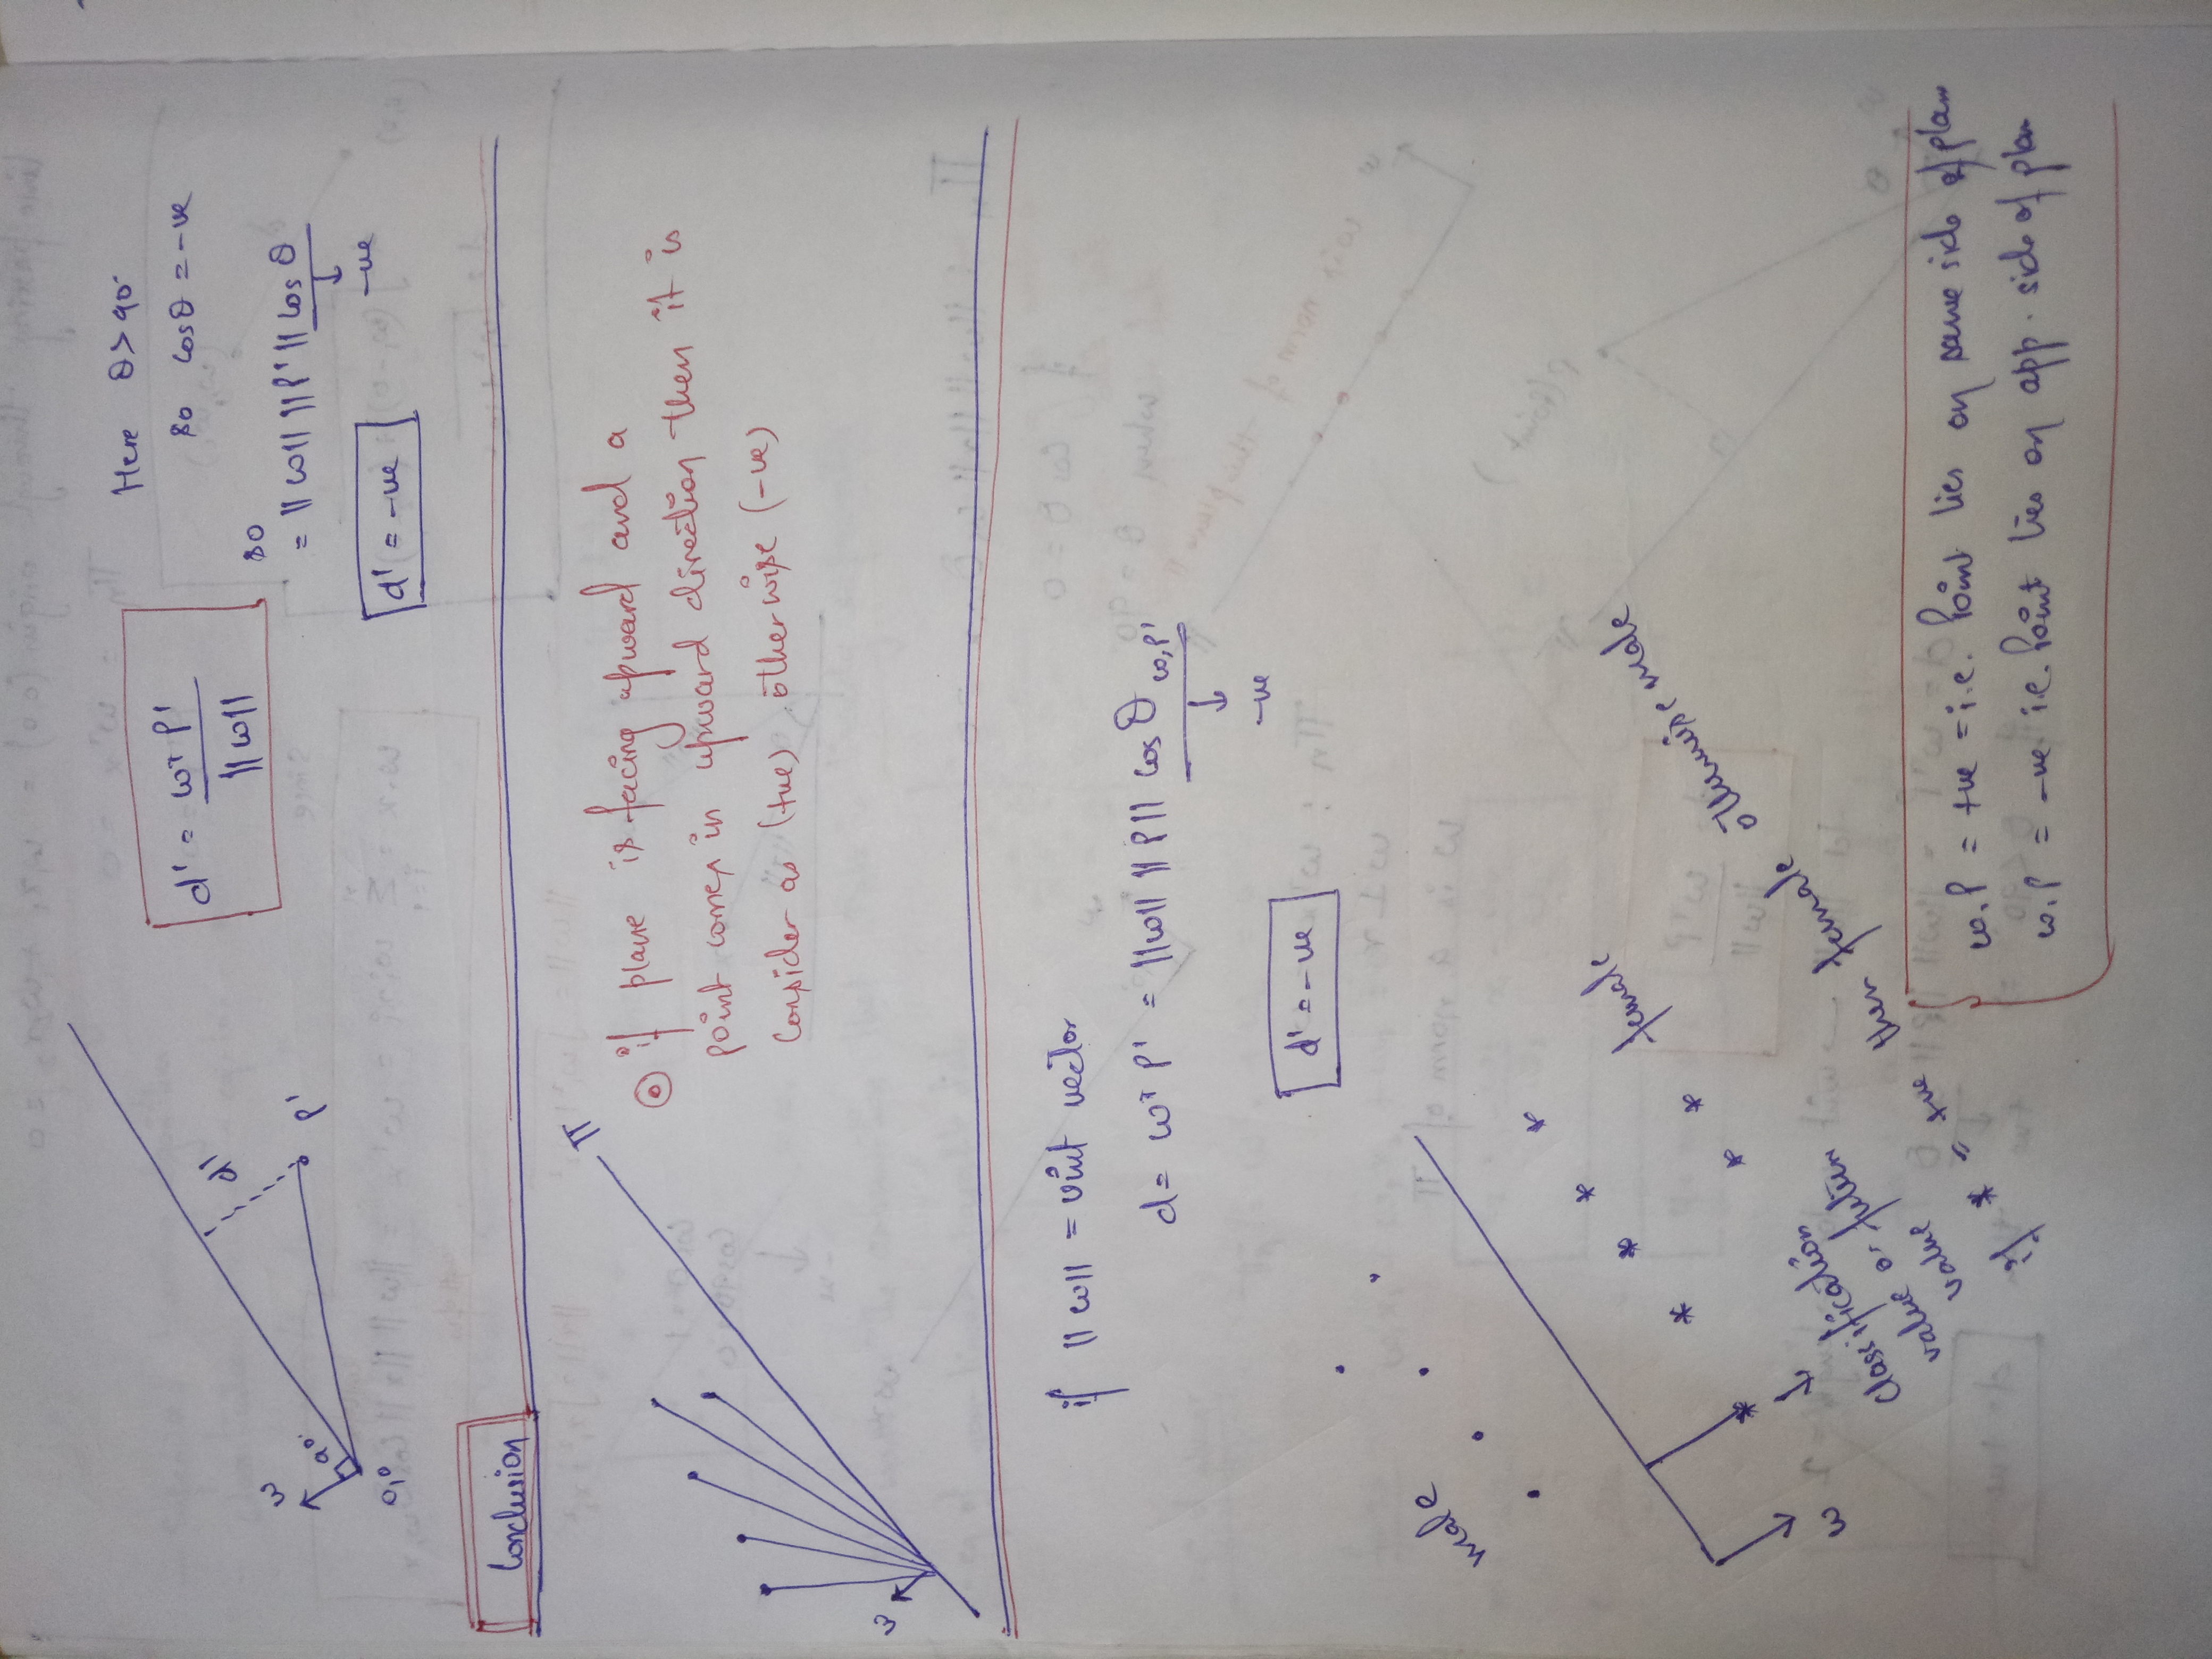 d' = wᵀ P' / ||w||
Here θ > 90°
so cosθ = -ve
so
= ||w|| ||P'|| cos θ
-ve
d' = -ve
d'
w
90°
P'
0,0
Conclusion
π
w
⊙ if plane is facing upward and a
point comes in upward direction then it is
Consider as (+ve) otherwise (-ve)
if ||w|| = uint vector
d = wᵀ P' = ||w|| ||P|| cos θ w,P'
-ve
d' = -ve
male
female
w
classification
value or
value
if * = +ve then female otherwise male
w.P = +ve = i.e. Point lies on same side of plan
w.P = -ve i.e. Point lies on opp. side of plan